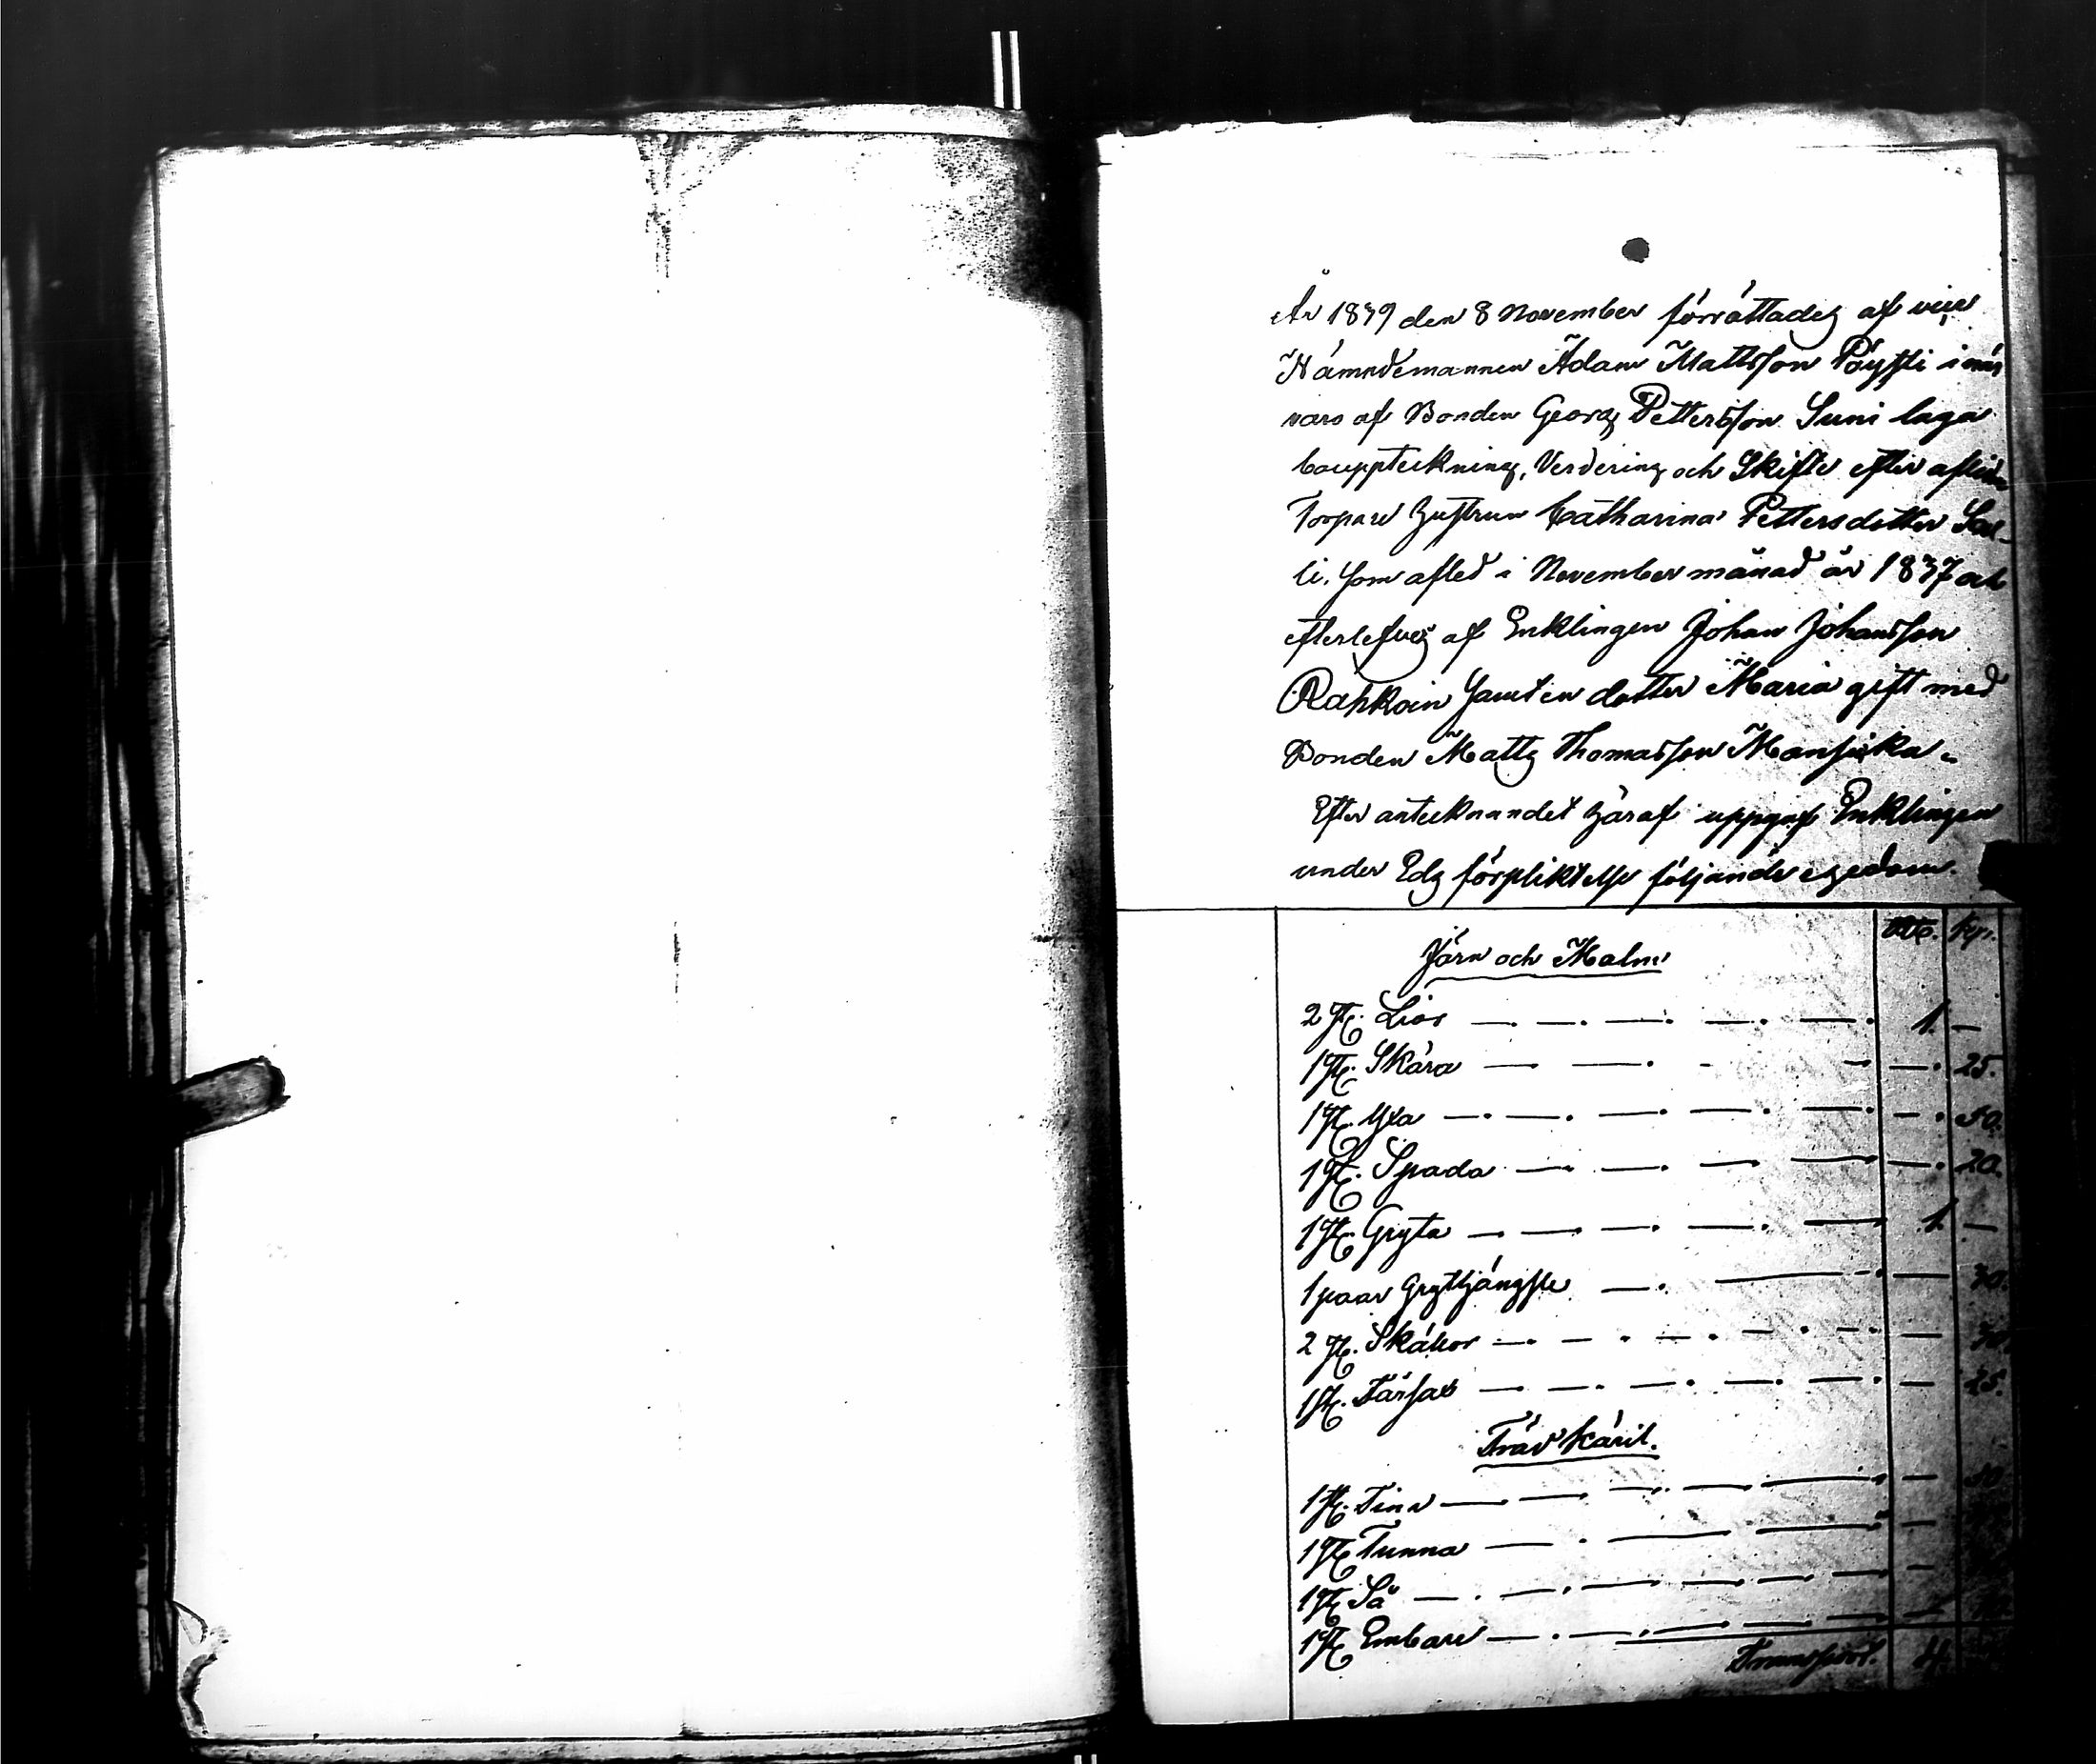 År 1839 den 8 November förrättades af
Nämndemannen Adam Mattsson Pöysti i när
varo af Bonden Georg Pettersson Suni laga
bouppteckning, Verdering och Skifte efter aflidn
Torpare hustrun Catharina Pettersdotter
li. som afled i November månad år 1837 och
efterlefves af Enklingen Johan Johansson
Rahkoin samt en dotter Maria gift med
Bonden Matts Thomasson Mansicka.
Efter antecknandet häraf uppgaf Enklingen
under Eds förpliktelse följande egedom.
Kp.
Järn och Malm
2 st. Liar — 1. —
1 st. Skära — 25.
1 st. Yxa — 50.
1 st. Spada — 20.
1 st. Gryta — 1. —
1 paar
2 st.
1 st. — 25.
Träd käril.
1 st. Tina —
1 st. Tunna —
1 st. Så —
1 st. Embare —
Transport. 4